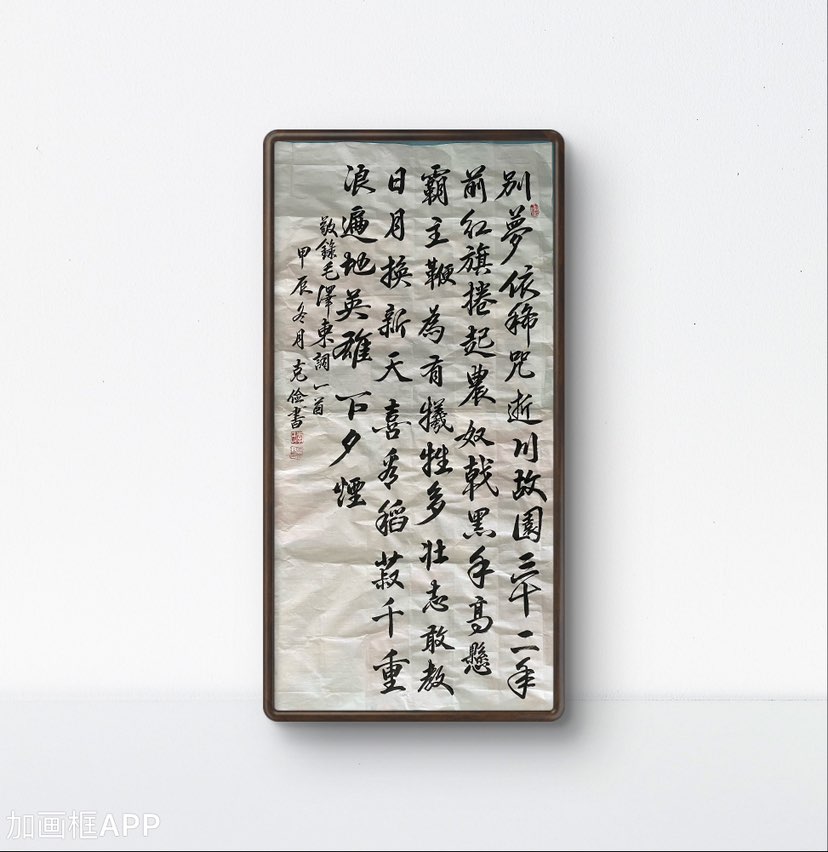 别夢依稀咒逝川故園三十二年
前紅旗捲起農奴戟黑手高懸
霸主鞭為有犧牲多壯志敢教
日月換新天喜看稻菽千重
浪遍地英雄下夕煙
敬錄毛澤東詞一首
甲辰冬月克儉書
加画框APP